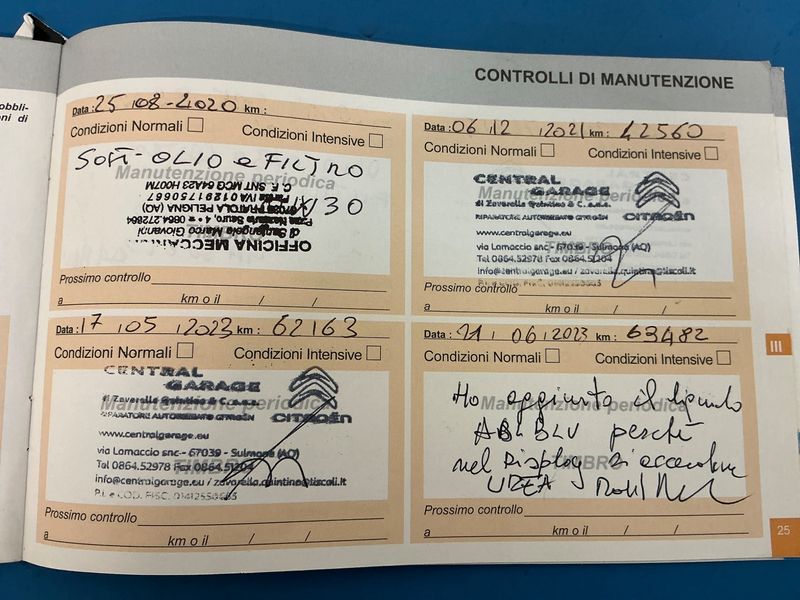 obbli-
ni di
CONTROLLI DI MANUTENZIONE
Data : 25 08 - 2020 km :
Condizioni Normali
Condizioni Intensive
Manutenzione periodica
SOST - OLIO e FILTRO
30
OFFICINA MECCANI
di Santangelo Marco Giovanni
PRATOLA PELIGNA (AQ)
Partita IVA 01291750667
C. F. SNT MCG 64A23 H007M
Prossimo controllo
a km o il / /
Data : 06 12 2021 km : 42560
Condizioni Normali
Condizioni Intensive
Manutenzione periodica
CENTRAL
GARAGE
di Zavarella Quintino & C. s.a.s.
RIPARATORE AUTORIZZATO CITROËN
CITROËN
www.centralgarage.eu
via Lamaccio snc - 67039 - Sulmona (AQ)
Tel 0864.52978 Fax 0864.51204
info@centralgarage.eu / zavarella.quintino@tiscali.it
Prossimo controllo
a km o il / /
Data : 17 05 2023 km : 62163
Condizioni Normali
Condizioni Intensive
Manutenzione periodica
CENTRAL
GARAGE
di Zavarella Quintino & C. s.a.s.
RIPARATORE AUTORIZZATO CITROËN
CITROËN
www.centralgarage.eu
via Lamaccio snc - 67039 - Sulmona (AQ)
Tel 0864.52978 Fax 0864.51204
TIMBRO
info@centralgarage.eu / zavarella.quintino@tiscali.it
P.I. e COD. FISC.
Prossimo controllo
a km o il / /
Data : 21 06 2023 km : 63482
Condizioni Normali
Condizioni Intensive
Manutenzione periodica
TIMBRO
Ho aggiunto il liquido
AD BLU perché
nel Display si accendeva
UREA
Prossimo controllo
a km o il / /
III
25